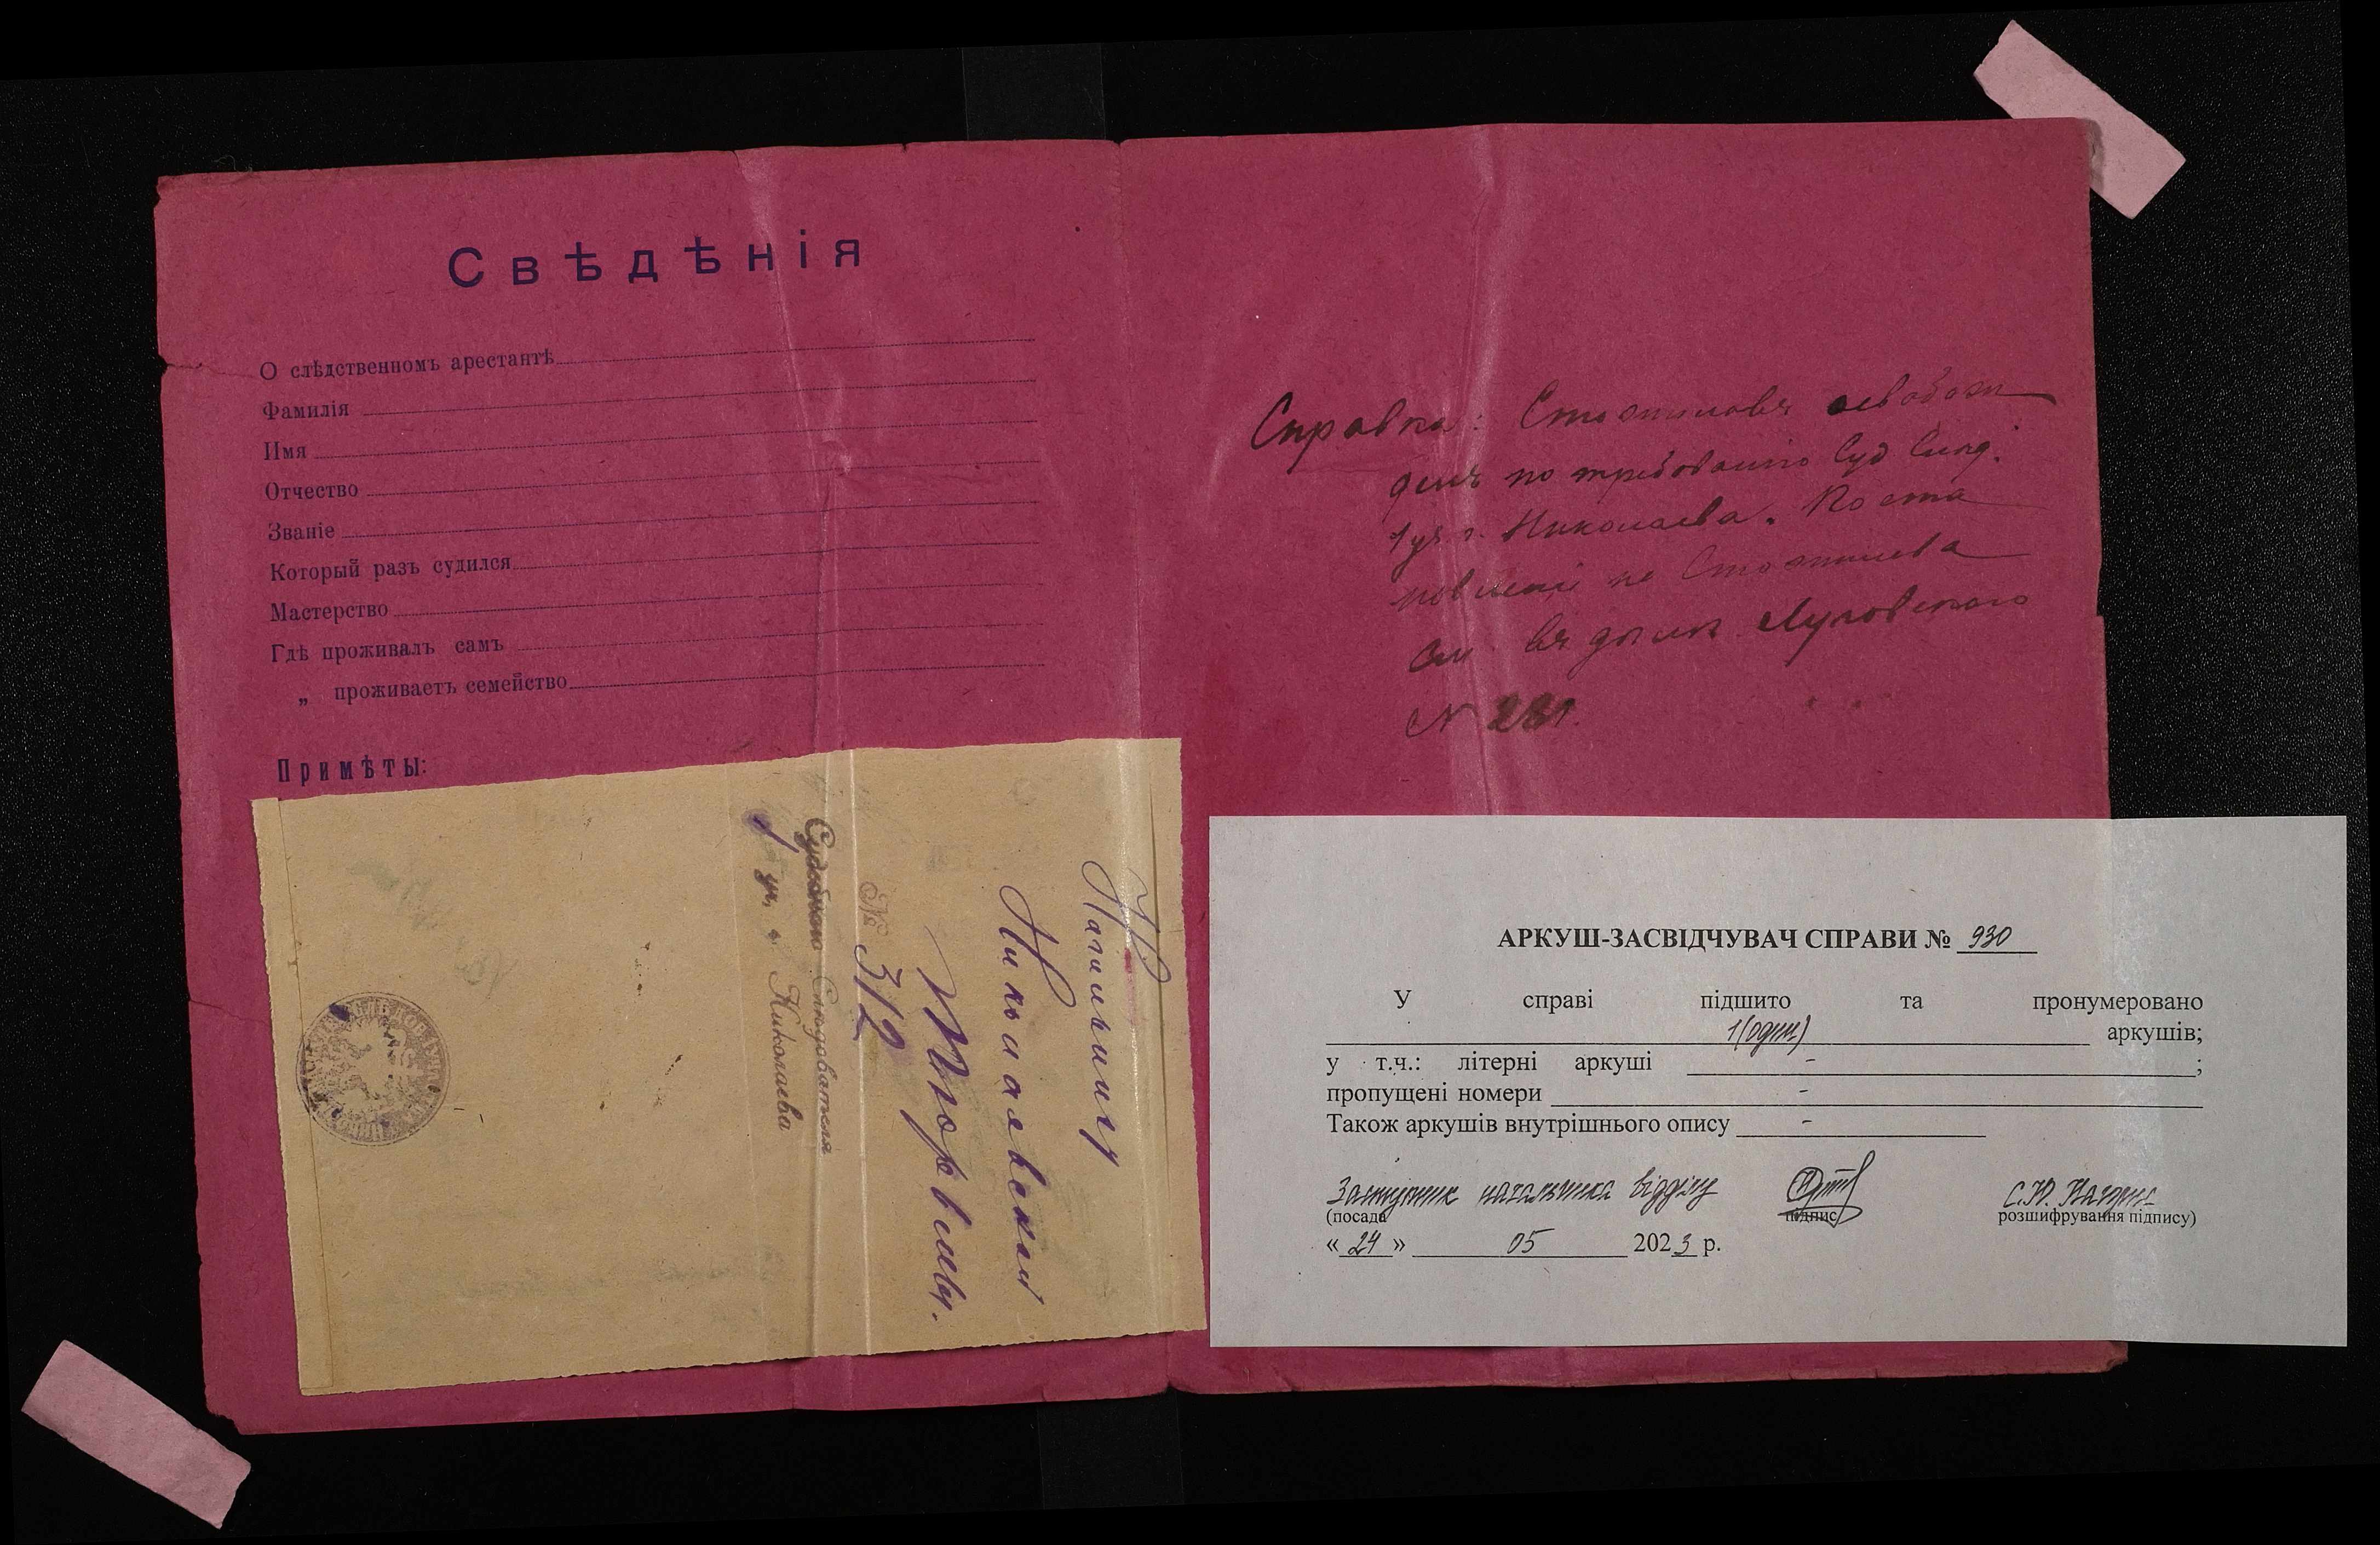 Свѣдѣнія
О слѣдственномъ арестантѣ
Фамилія
Имя
Отчество
Званіе
Который разъ судился
Мастерство
Гдѣ проживалъ самъ
„ проживаетъ семейство
Примѣты:
Справка: освобож
денъ по требованію Суд Слѣд.
1 уч г. Николаева. Поста
въ дѣлѣ
N 281.
Николаевской
Тюрьмы.
№ 312
Судебного Слѣдователя
1 уч. г. Николаева
АРКУШ-ЗАСВІДЧУВАЧ СПРАВИ № 930
У справі підшито та пронумеровано
1 (один) аркушів;
у т.ч.: літерні аркуші - ;
пропущені номери -
Також аркушів внутрішнього опису -
Заступник начальника відділу С.Ю.
(посада підпис розшифрування підпису)
« 24 » 05 2023 р.